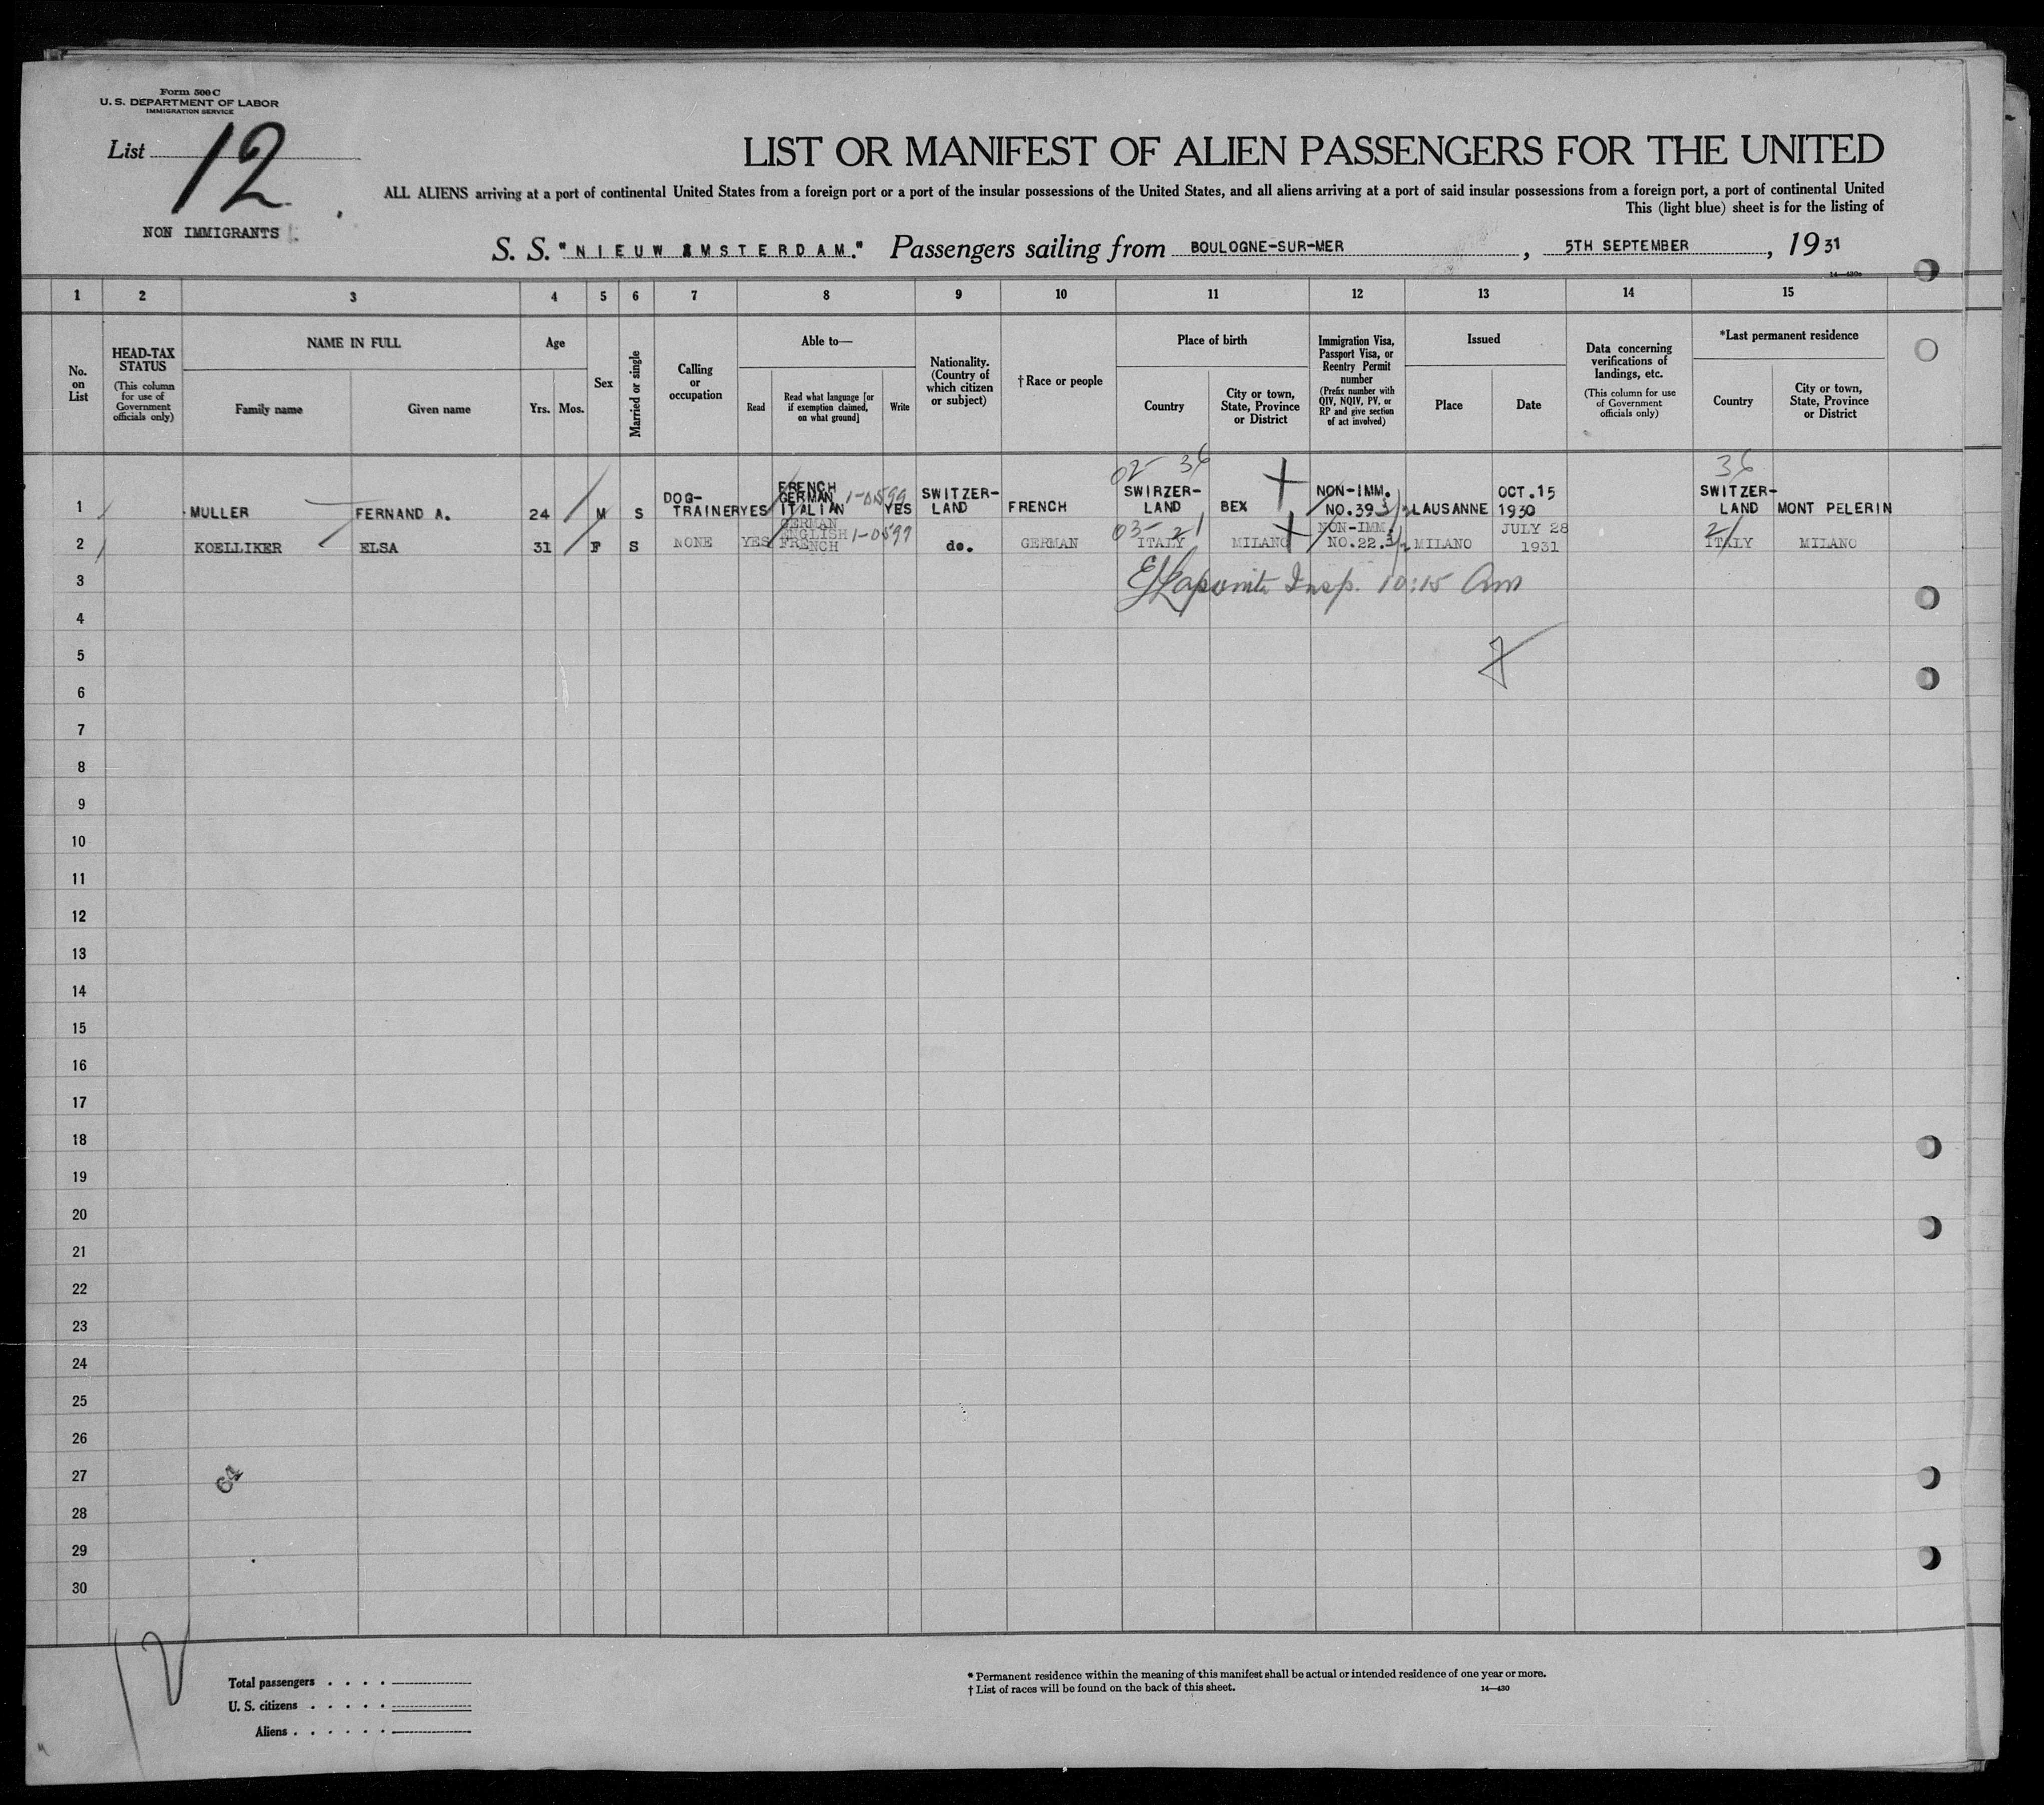 Form 500 C
U. S. DEPARTMENT OF LABOR
IMMIGRATION SERVICE
List 12
NON IMMIGRANTS
LIST OR MANIFEST OF ALIEN PASSENGERS FOR THE UNITED
ALL ALIENS arriving at a port of continental United States from a foreign port or a port of the insular possessions of the United States, and all aliens arriving at a port of said insular possessions from a foreign port, a port of continental United
This (light blue) sheet is for the listing of
S. S. "NIEUW AMSTERDAM." Passengers sailing from BOULOGNE-SUR-MER, 5TH SEPTEMBER, 1931
14—430a
1 2 3 4 5 6 7 8 9 10 11 12 13 14 15
No. on List
HEAD-TAX STATUS
(This column for use of Government officials only)
NAME IN FULL
Family name
Given name
Age
Yrs. Mos.
Sex
Married or single
Calling or occupation
Able to—
Read
Read what language [or if exemption claimed, on what ground]
Write
Nationality. (Country of which citizen or subject)
†Race or people
Place of birth
Country
City or town, State, Province or District
Immigration Visa, Passport Visa, or Reentry Permit number
(Prefix number with QIV, NQIV, PV, or RP and give section of act involved)
Issued
Place
Date
Data concerning verifications of landings, etc.
(This column for use of Government officials only)
*Last permanent residence
Country
City or town, State, Province or District
02- 36 36
1 MULLER FERNAND A. 24 M S DOG-TRAINER YES FRENCH GERMAN ITALIAN 1-0599 YES SWITZER-LAND FRENCH SWIRZER-LAND BEX NON-IMM. NO.39 3/2 LAUSANNE OCT.15 1930 SWITZER-LAND MONT PELERIN
03- 21 21
2 KOELLIKER ELSA 31 F S NONE YES GERMAN ENGLISH FRENCH 1-0599 do. GERMAN ITALY MILANO NON-IMM. NO.22. 3/2 MILANO JULY 28 1931 ITALY MILANO
3 Insp. 10:15 Am
4
5
6
7
8
9
10
11
12
13
14
15
16
17
18
19
20
21
22
23
24
25
26
27
64
28
29
30
12
Total passengers
U. S. citizens
Aliens
* Permanent residence within the meaning of this manifest shall be actual or intended residence of one year or more.
† List of races will be found on the back of this sheet.
14—430